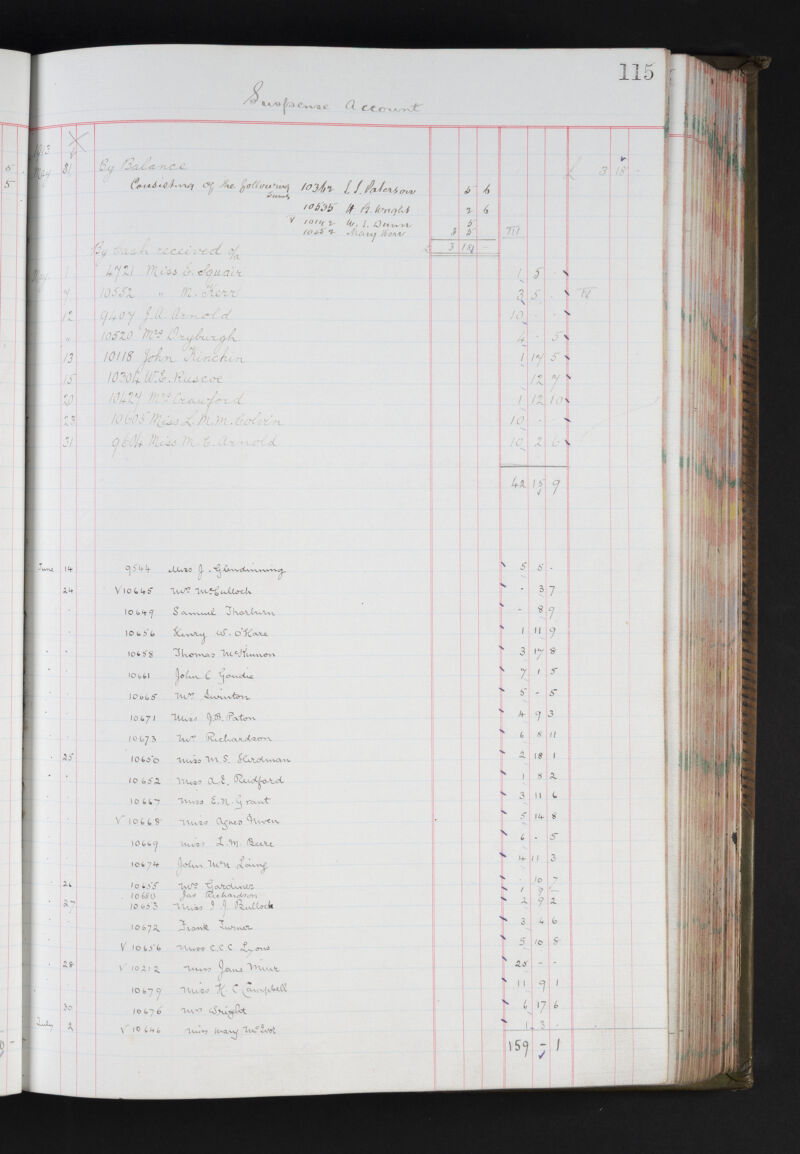 115
Suspense Account
1913
May 31 By Balance £ 3 18 -
Consisting of the following sums 10362 L. S. Paterson 5 6
10535 H. A. Wright 2 6
V 10142 W. S. Dunn 5
10552 Mary Kerr 3 5
£ 3 18 -
By cash received o/a
May 1 4721 Miss E. Squair 1 5
7 10552 " M. Kerr 3 5 -
12 9407 J. A. Arnold 10 - -
" 10520 Mrs Dryburgh 4 - 5
13 10118 John Kinchin 1 17 5
15 10304 W. E. Ruscoe 12 7
20 10427 Mrs Crawford 1 12 10
23 10605 Miss L. M. M. Colvin 10 - -
31 9604 Miss M. E. Arnold 10 2 6
42 15 9
June 14 9544 Miss J. Glendinning 5 5 -
24 V 10645 Mrs McCulloch - 3 7
10649 Samuel Thorburn - 8 9
10656 Henry W. O'Hare 1 11 9
10658 Thomas McKinnon 3 17 8
10661 John C Goudie 7 1 5
10665 Mrs Swinton 5 - 5
10671 Miss J. B. Paton 4 9 3
10673 Mrs Richardson 6 8 11
25 10650 Miss M. S. Hirdman 2 18 1
10652 Miss A. E. Redford 1 8 2
10667 Miss E. N. Grant 3 11 6
V 10668 Miss Agnes Niven 5 14 8
10669 Miss L. M. Beere 6 - 5
10674 John McN Laing 4 11 3
26 10655 Mrs Gardiner - 10 7
10680 Jas Richardson 1 9 -
27 10653 Miss I J. Bullock 2 9 2
10672 Frank Turner 3 4 6
V 10656 Miss C. C. C. Lyons 5 10 8
28 V 10212 Miss Jane Muir 25 - -
10679 Miss H. C Campbell 11 9 1
30 10676 Mrs Wright 6 17 6
July 2 V 10646 Miss Mary McEvot 1 3 -
159 - 1